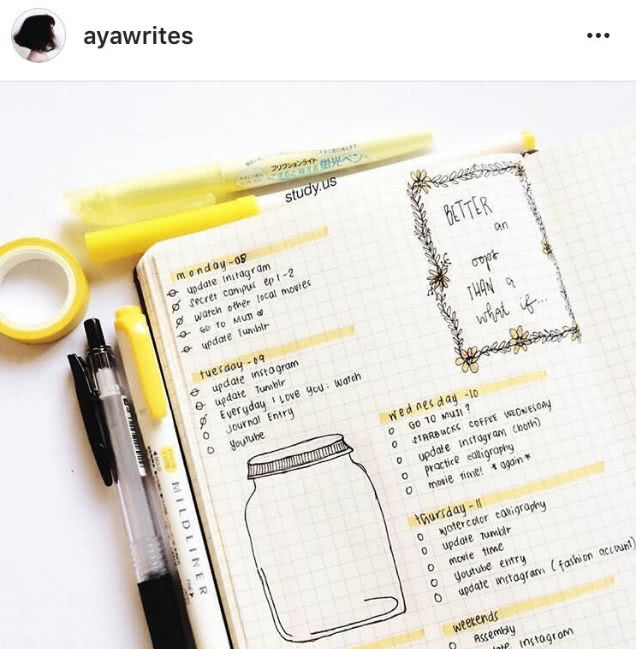 ayawrites
フリクションライト
蛍光ペン
study.us
monday-08
update instagram
secret campus ep 1-2
watch other local movies
GO TO MUJI
update Tumblr
tuesday-09
update instagram
update Tumblr
Everyday I Love You: watch
Journal Entry
Youtube
BETTER
an
oops
THAN a
what if...
wednesday -10
GO TO MUJI?
STARBUCKS COFFEE WEDNESDAY
update instagram (both)
practice calligraphy
movie time! *again*
thursday-11
watercolor calligraphy
update tumblr
movie time
youtube entry
update instagram (fashion account)
weekends
Assembly
instagram
MILDLINER